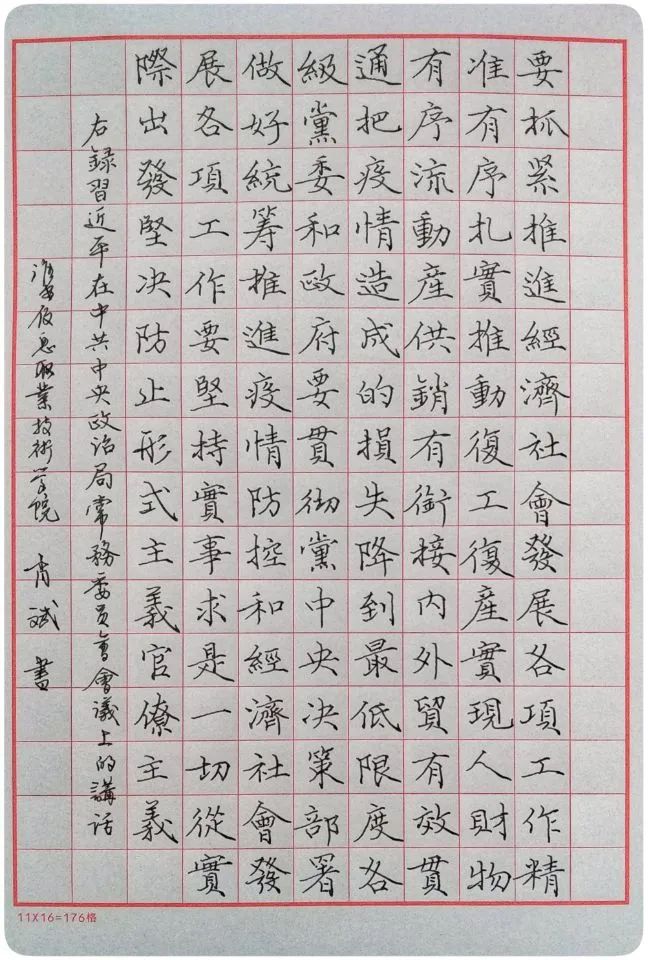 要抓紧推進經濟社會發展各項工作精
准有序扎實推動復工復産實現人財物
有序流動産供銷有銜接内外貿有效貫
通把疫情造成的損失降到最低限度各
級黨委和政府要貫彻黨中央決策部署
做好統筹推進疫情防控和經濟社會發
展各項工作要堅持實事求是一切從實
際出發堅决防止形式主義官僚主義
右録習近平在中共中央政治局常務委員會會議上的講话
淮安信息职業技術学院 肖斌 書
11X16=176格